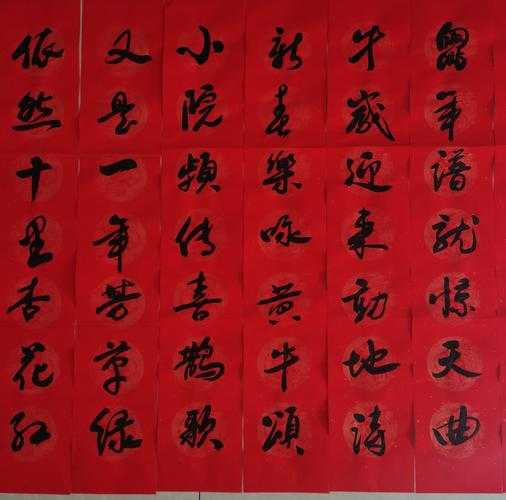 鼠年谱就惊天曲
牛岁迎来动地诗
新春乐咏黄牛颂
小院频传喜鹊歌
又是一年芳草绿
依然十里杏花红